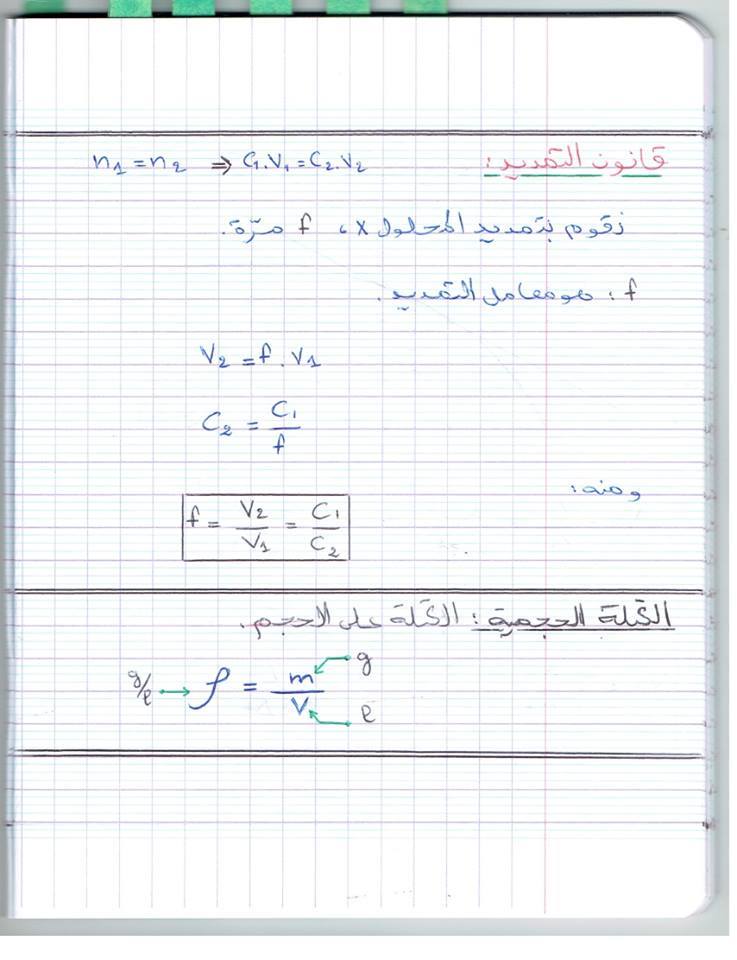 قانون التمديد: n1 = n2 ⇒ C1.V1 = C2.V2
نقوم بتمديد المحلول x، f مرّة.
f: هو معامل التمديد.
V2 = f . V1
C2 = C1/f
ومنه:
f = V2/V1 = C1/C2
الكتلة الحجمية: الكتلة على الاحجم.
g/l → ρ = m/V
g
l